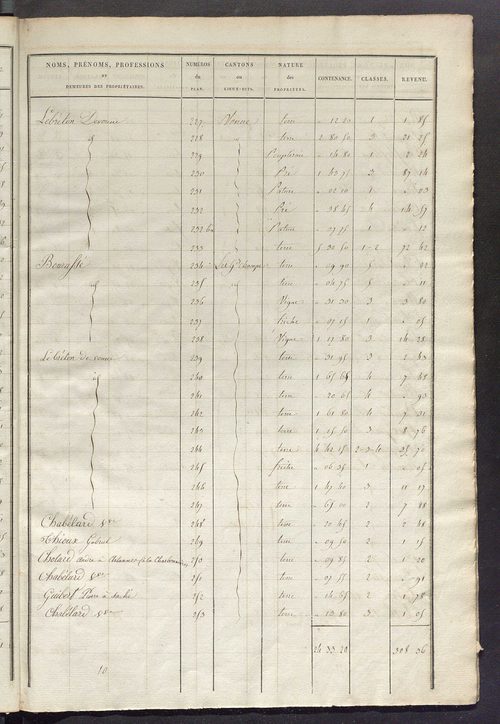 NOMS, PRÉNOMS, PROFESSIONS ET DEMEURES DES PROPRIÉTAIRES. NUMÉROS du PLAN. CANTONS ou LIEUX-DITS. NATURE des PROPRIÉTÉS. CONTENANCE. CLASSES. REVENU.
Lebreton 227 Vonne terre " 12 20 1 1 85
id 228 terre 2 80 50 3 21 25
229 " 14 80 1 2 24
230 Pré 1 43 75 3 87 14
231 Pature " 02 10 1 " 03
232 Pré " 38 45 4 14 57
232 bis Pature " 07 75 1 " 12
233 terre 5 30 50 1-2 72 42
234 terre " 09 90 5
id 235 terre " 04 75 5 " 11
236 Vigne " 31 30 3 3 80
237 friche " 07 15 1 " 05
238 Vigne 1 17 80 3 14 28
Lebreton de vonne 239 terre " 31 95 3 2 43
id 240 terre 1 65 65 4 7 48
241 terre " 20 65 4 " 93
242 terre 1 61 80 4 7 31
243 terre 1 15 50 3 8 76
244 terre 4 42 15 2-3-4 35 70
245 friche " 06 35 1 " 05
246 terre 1 47 40 3 11 17
247 terre " 65 00 2 7 88
Chabélard Vve 248 terre " 20 45 2 2 48
Thioux Gabriel 249 terre " 09 50 2 1 15
Cholard 250 terre " 09 85 2 1 20
Chabélard Vve 251 terre " 07 55 2 " 91
Guibert Pierre à Saché 252 terre " 14 65 2 1 78
Chabélard Vve 253 terre " 13 80 3 1 05
24 33 20 308 36
10